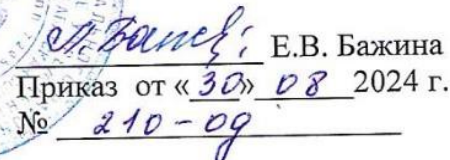 Е.В. Бажина
Приказ от «30» 08 2024 г.
№ 210-од